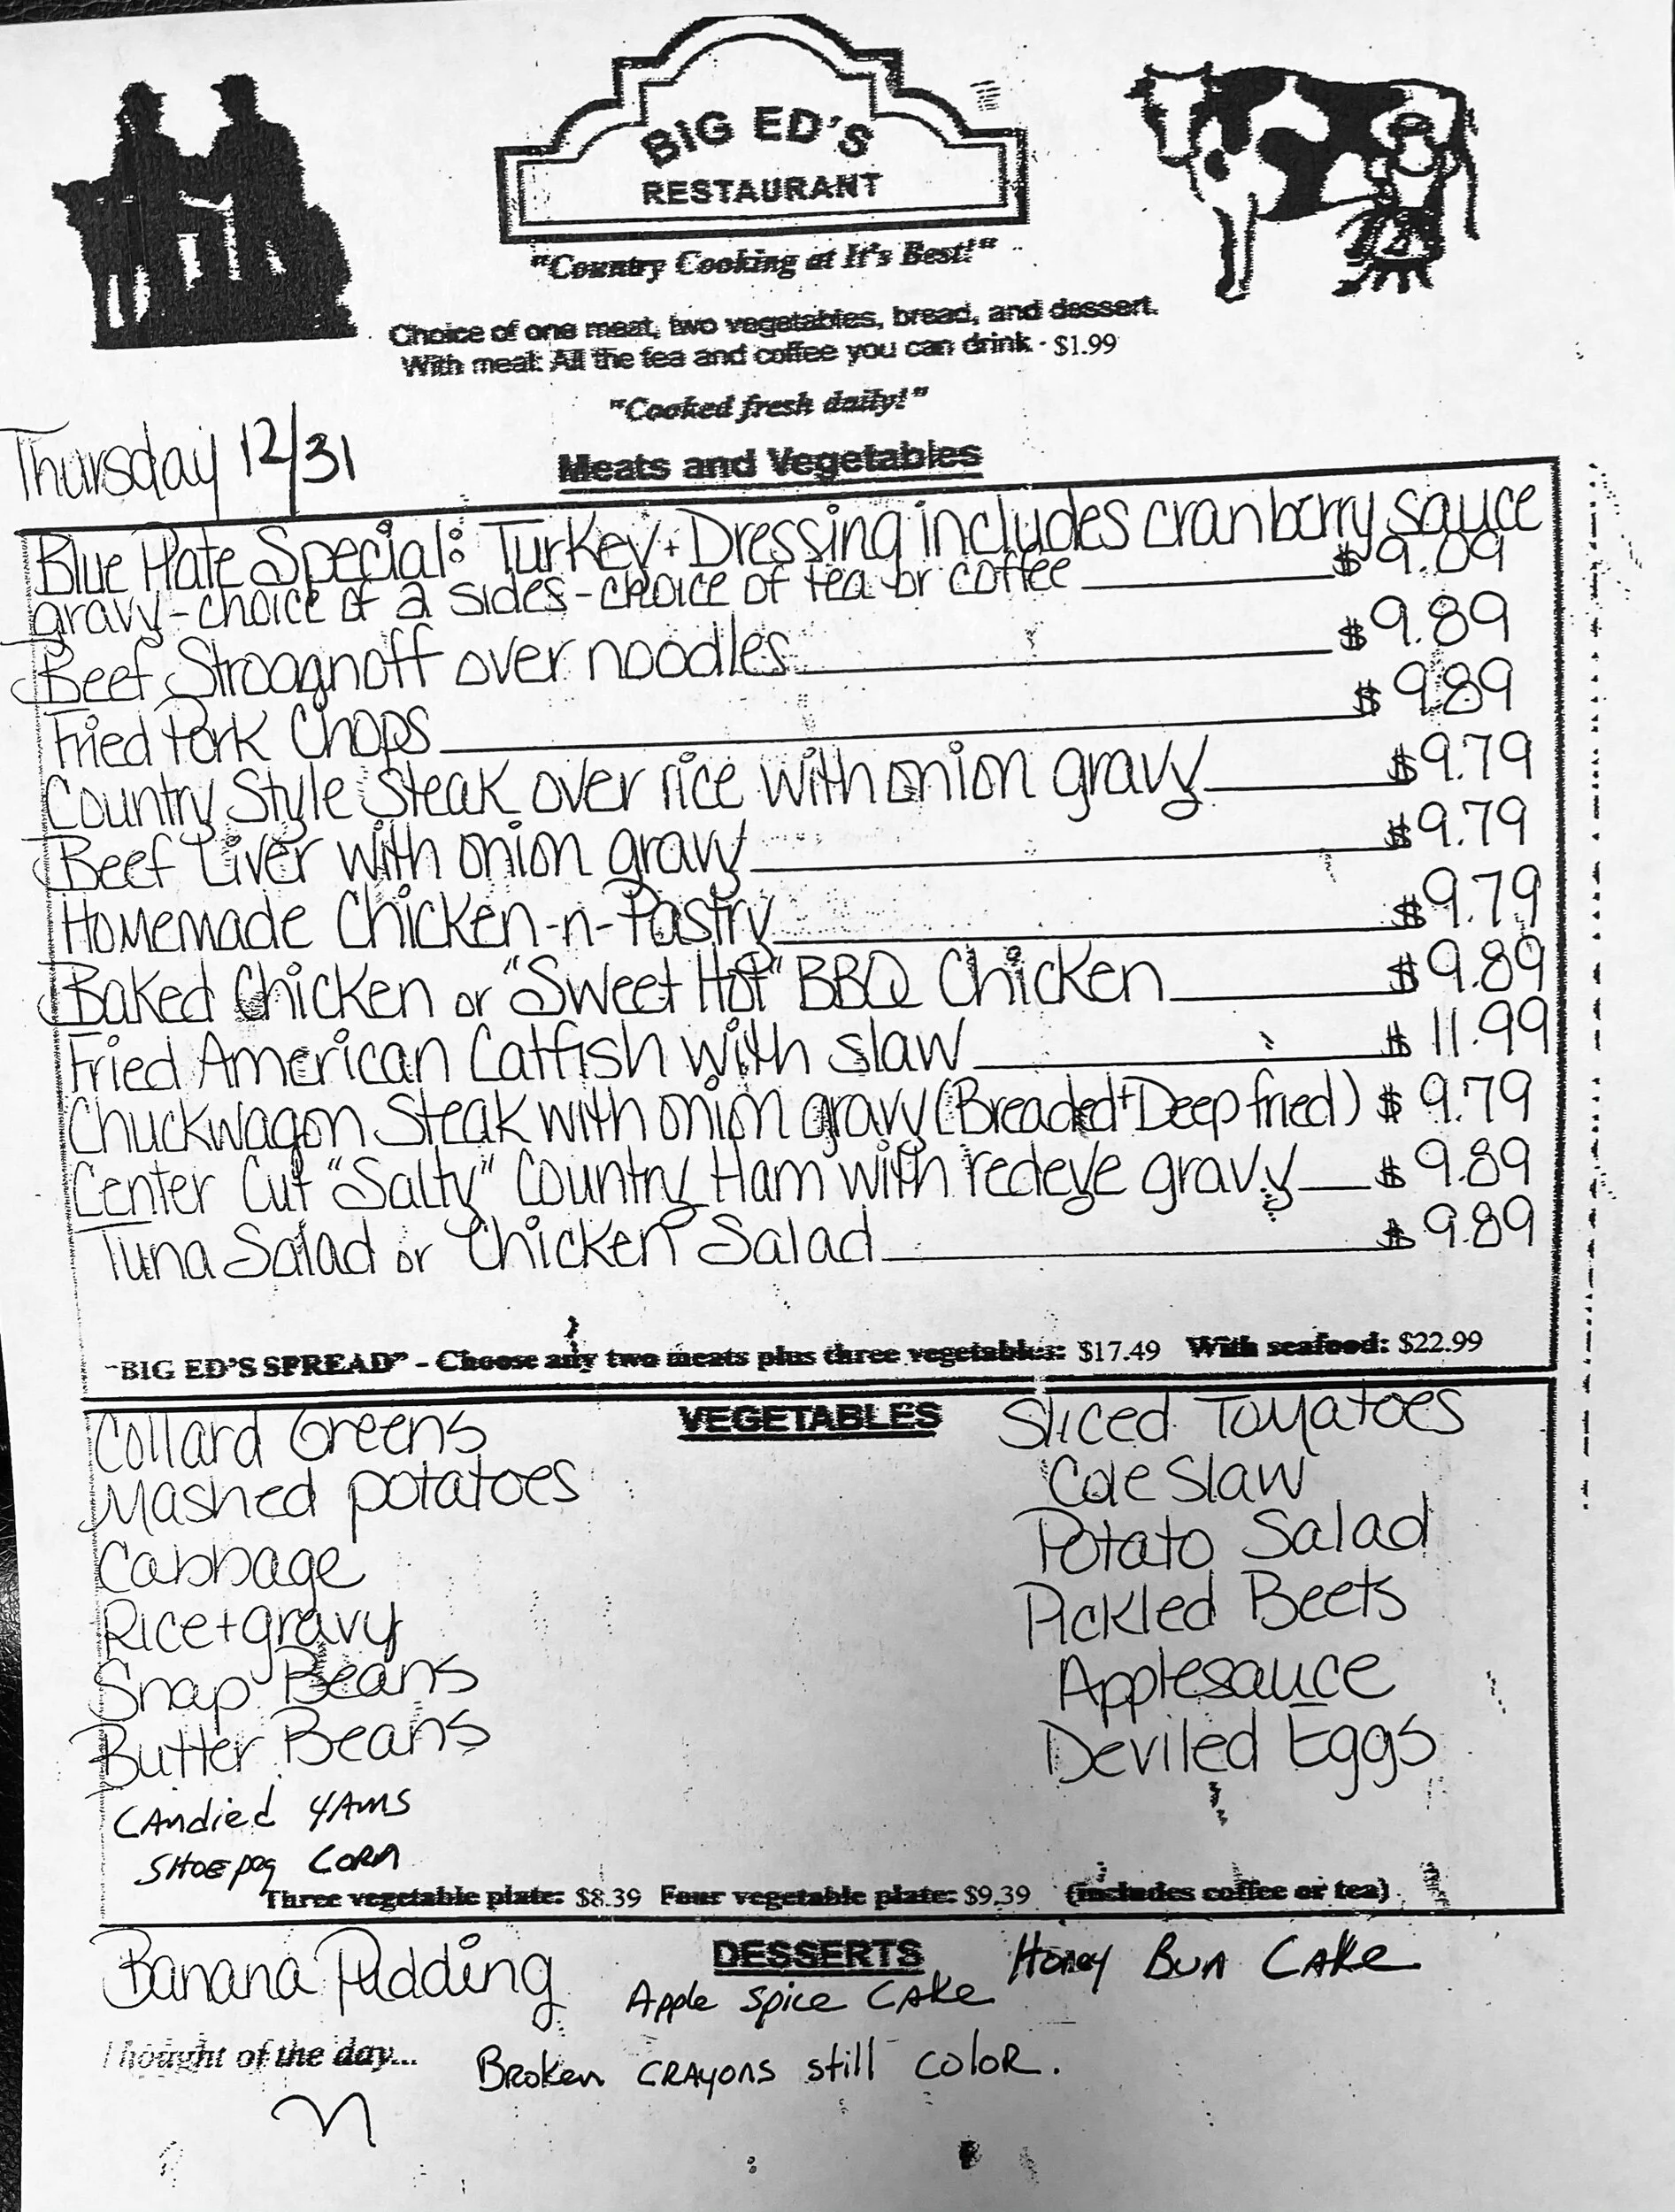 BIG ED'S
RESTAURANT
"Country Cooking at It's Best!"
Choice of one meat, two vegetables, bread, and dessert.
With meal: All the tea and coffee you can drink - $1.99
"Cooked fresh daily!"
Thursday 12/31
Meats and Vegetables
Blue Plate Special: Turkey + Dressing includes cranberry sauce
gravy - choice of 2 sides - choice of tea or coffee $9.09
Beef Stroagnoff over noodles $9.89
Fried Pork Chops $9.89
Country Style Steak over rice with onion gravy $9.79
Beef Liver with onion gravy $9.79
Homemade Chicken-n-Pastry $9.79
Baked Chicken or "Sweet Hot" BBQ Chicken $9.89
Fried American Catfish with slaw $11.99
Chuckwagon Steak with onion gravy (Breaded + Deep fried) $9.79
Center Cut "Salty" Country Ham with redeye gravy $9.89
Tuna Salad or Chicken Salad $9.89
"BIG ED'S SPREAD" - Choose any two meats plus three vegetables: $17.49 With seafood: $22.99
VEGETABLES
Collard Greens
Mashed potatoes
Cabbage
Rice + gravy
Snap Beans
Butter Beans
Candied Yams
Shoepeg Corn
Sliced Tomatoes
Cole Slaw
Potato Salad
Pickled Beets
Applesauce
Deviled Eggs
Three vegetable plate: $8.39 Four vegetable plate: $9.39 (includes coffee or tea)
DESSERTS
Banana Pudding Apple Spice Cake Honey Bun Cake
Thought of the day... Broken crayons still color.